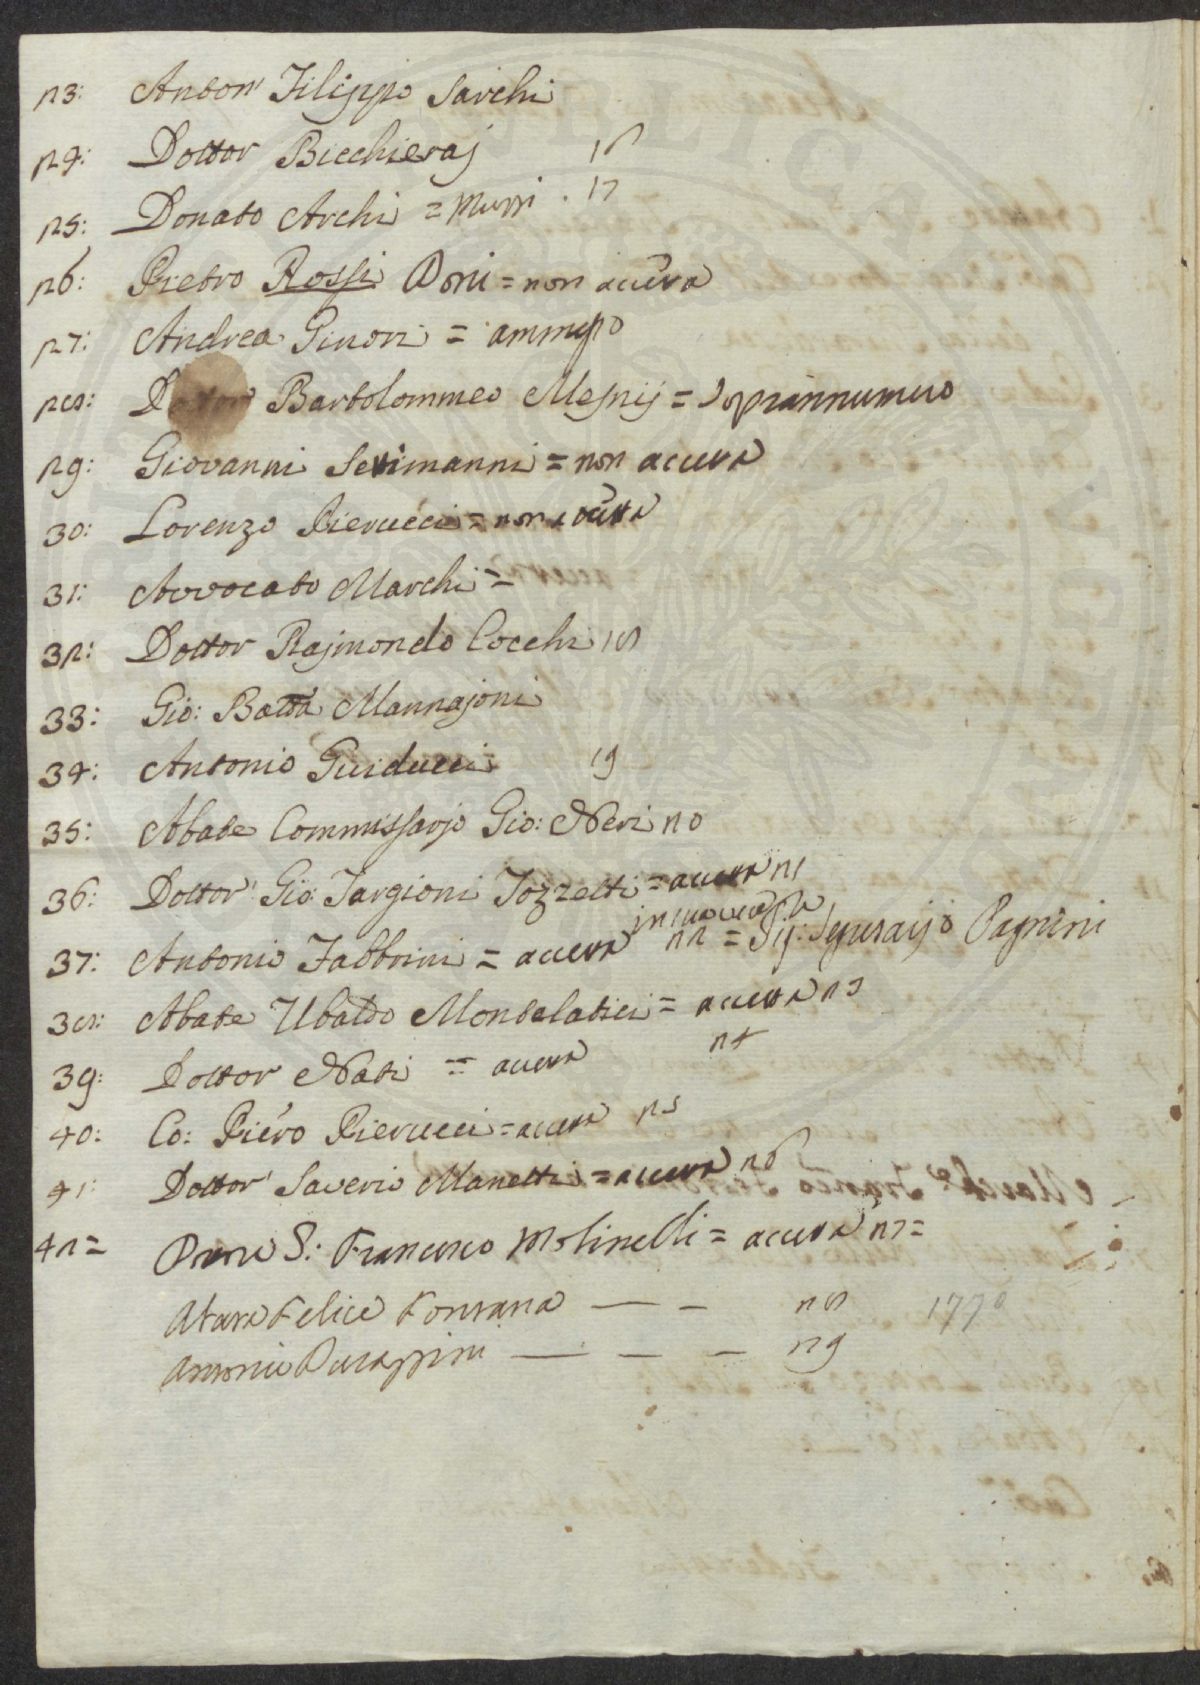 23: Anton' Filippo Sarchi
24: Dottor Bicchieraj 16
25: Donato Archi = Muzzi . 17
26: Pietro Rossi Doni = non accetta
27: Andrea Ginori = ammesso
28: Dottor Bartolommeo Mesnij = Soprannumero
29: Giovanni Settimanni = non accetta
30: Lorenzo Pierucci = non accetta
31: Avvocato Marchi =
32: Dottor Rajmondo Cocchi 18
33: Gio: Batta Mannajoni
34: Antonio Guiducci 19
35: Abate Commissarjo Gio: Neri 20
36: Dottor' Gio: Targioni Tozzetti = accetta 21
in sua vece
37: Antonio Fabbrini = accetta 22 = Sig: Pagnini
38: Abate Ubaldo Montelatici = accetta 23
39: Dottor Nati = accetta 24
40: Co: Piero Pierucci = accetta 25
41: Dottor' Saverio Manetti = accetta 26
42= S: Francesco Molinelli = accetta 27=
Abate Felice Fontana — — 28 1770
Antonio Durazzini — — — 29